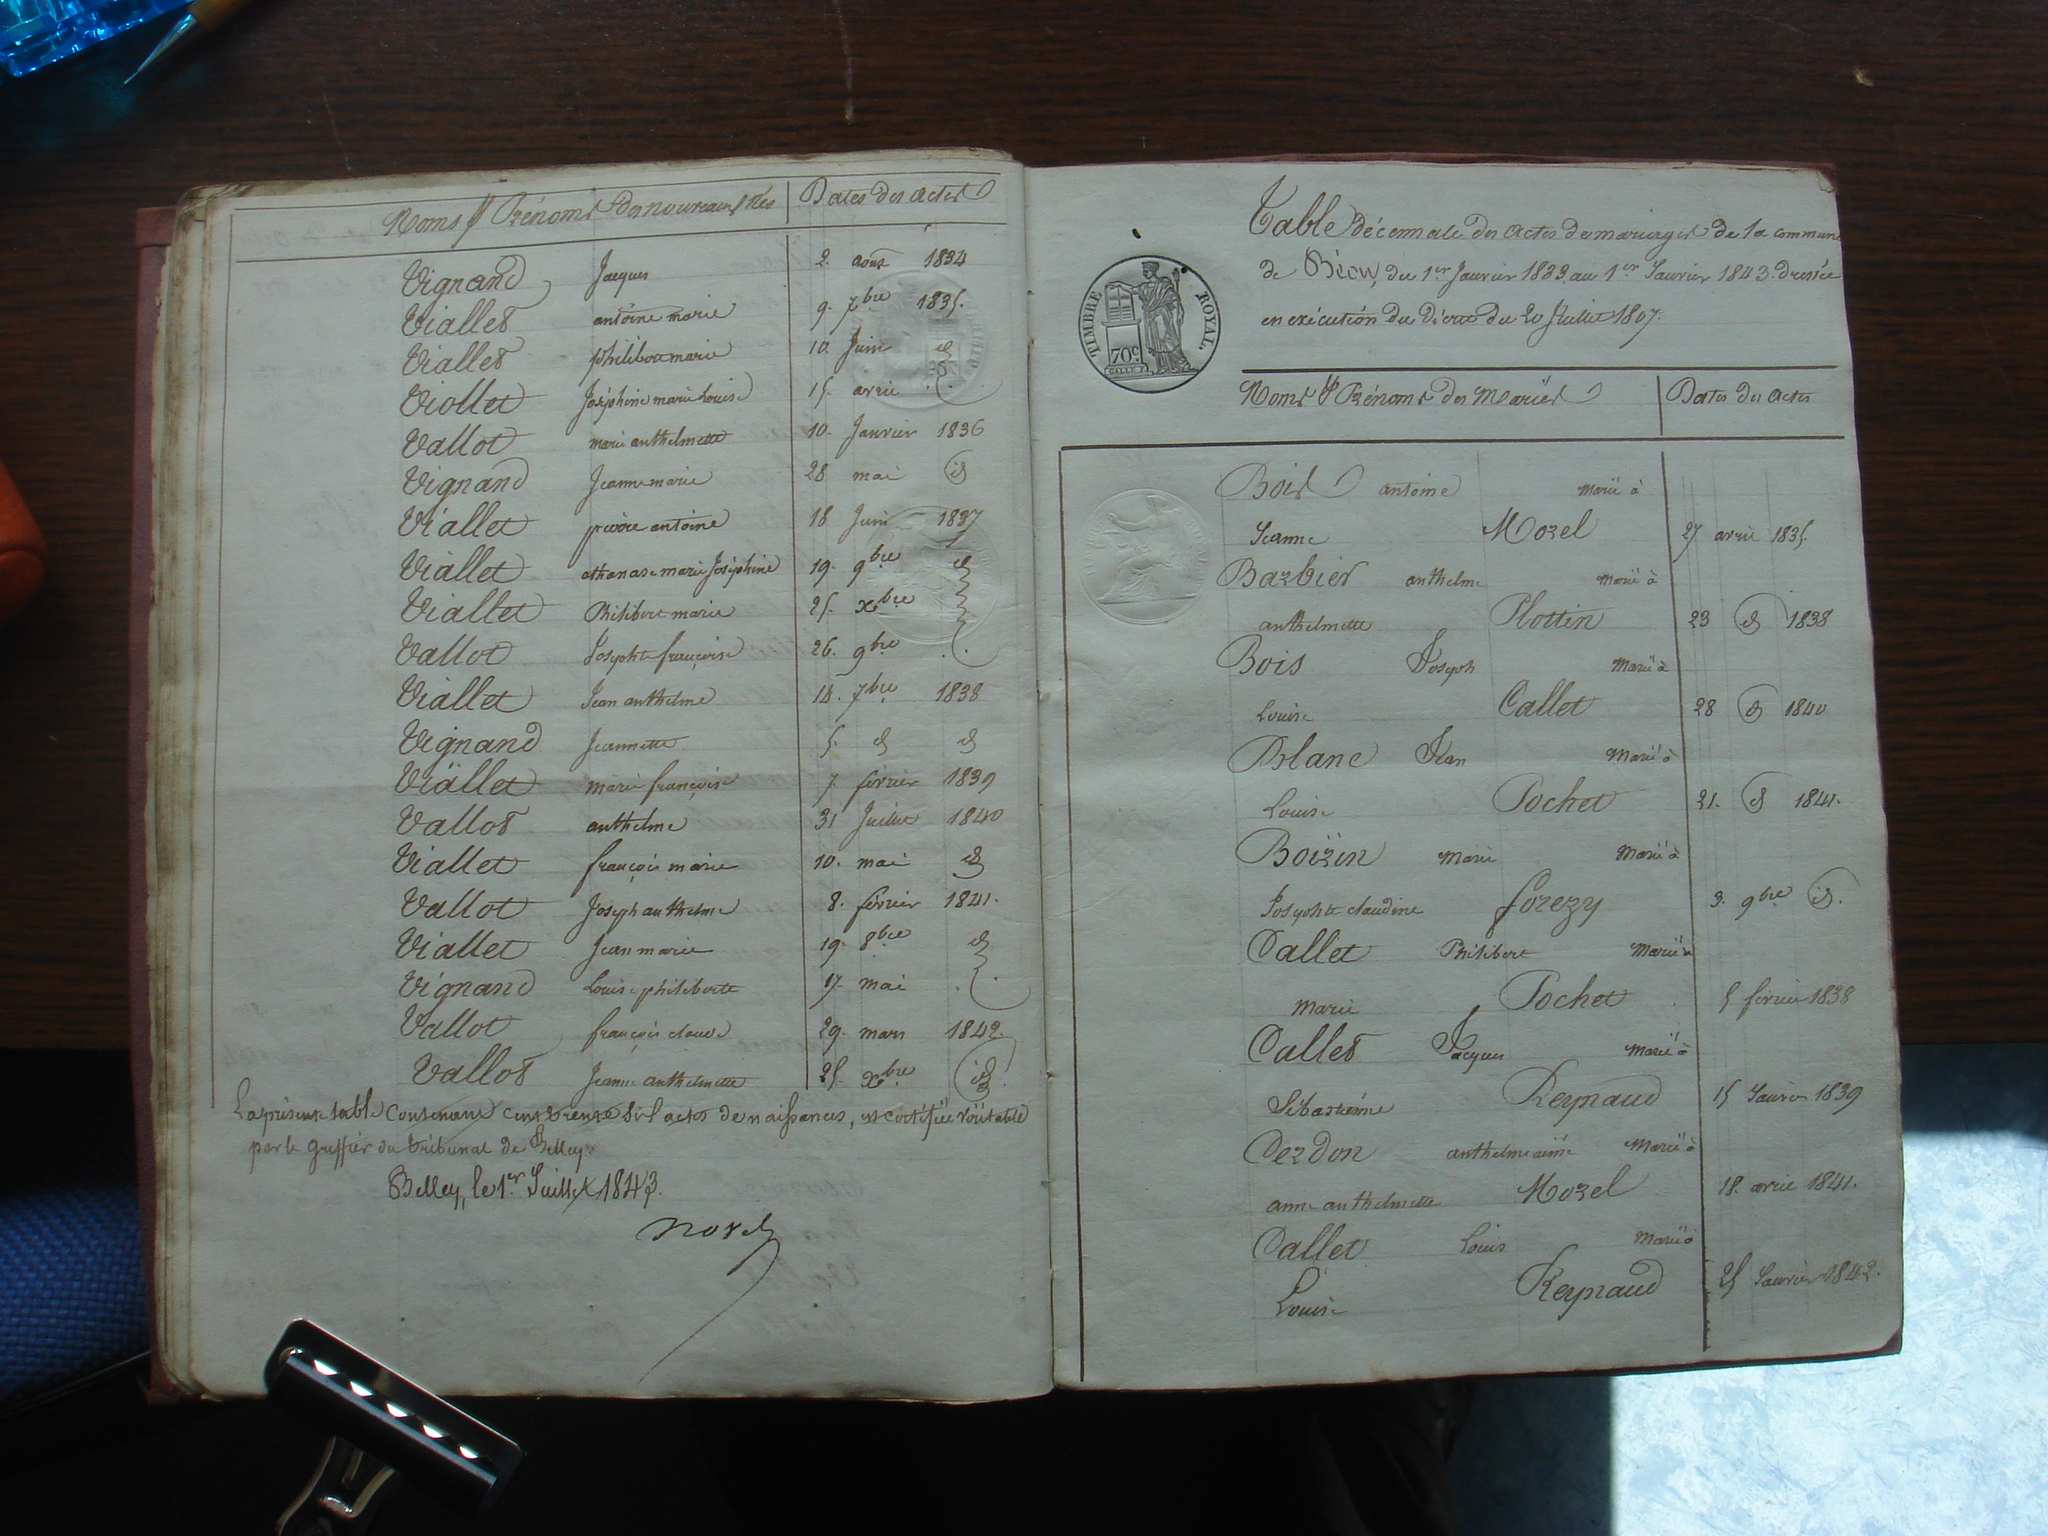 Noms & Prénoms des nouveaux nés Dates des actes
Vignand Jacques 2. aout 1834
Viallet antoine marie 9. 7bre 1835.
Viallet philibert marie 10. Juin id
Viollet Joséphine marie Louise 15. avril
Vallot marie anthelmette 10. Janvier 1836
Vignand Jeanne marie 28 mai id
Viallet pierre antoine 18 Juin 1837
Viallet athanase marie Joséphine 19. 9bre id
Viallet Philibert marie 25. xbre
Vallot Josephte françoise 26. 9bre
Viallet Jean anthelme 14. 7bre 1838
Vignand Jeannette 5. id id
Viallet marie françoise 7. février 1839
Vallot anthelme 31 Juillet 1840
Viallet françois marie 10. mai id
Vallot Joseph anthelme 8. février 1841.
Viallet Jean marie 19. 8bre id
Vignand Louise philiberte 17. mai
Vallot françois claude 29. mars 1842.
Vallot Jeanne anthelmette 25. xbre id.
La présente table contenant cent trente six actes de naissances, est certifiée véritable
par le greffier du tribunal de Belley.
Belley, le 1er Juillet 1843.
TIMBRE ROYAL.
70c
Table décennale des actes de mariages de la commune
de du 1er Janvier 1833 au 1er Janvier 1843. dressée
en exécution du Décret du 20 Juillet 1807.
Noms & Prénoms des Mariés Dates des actes
Bois antoine marié à
Jeanne Mozel 27 avril 1835.
Barbier anthelme marié à
anthelmette Plottin 23 id 1838
Bois Joseph marié à
Louise Callet 28 id 1840
Blanc Jean marié à
Louise Pochet 21. id 1841.
Boizin Marie marié à
Josephte claudine forezy 3. 9bre id.
Callet Philibert marié à
Marie Pochet 5 février 1838
Callet Jacques marié à
Sébastienne Reynaud 15 Janvier 1839
Cerdon anthelme aimé marié à
anne anthelmette Mozel 18. avril 1841.
Callet Louis marié à
Louise Reynaud 25 Janvier 1842.